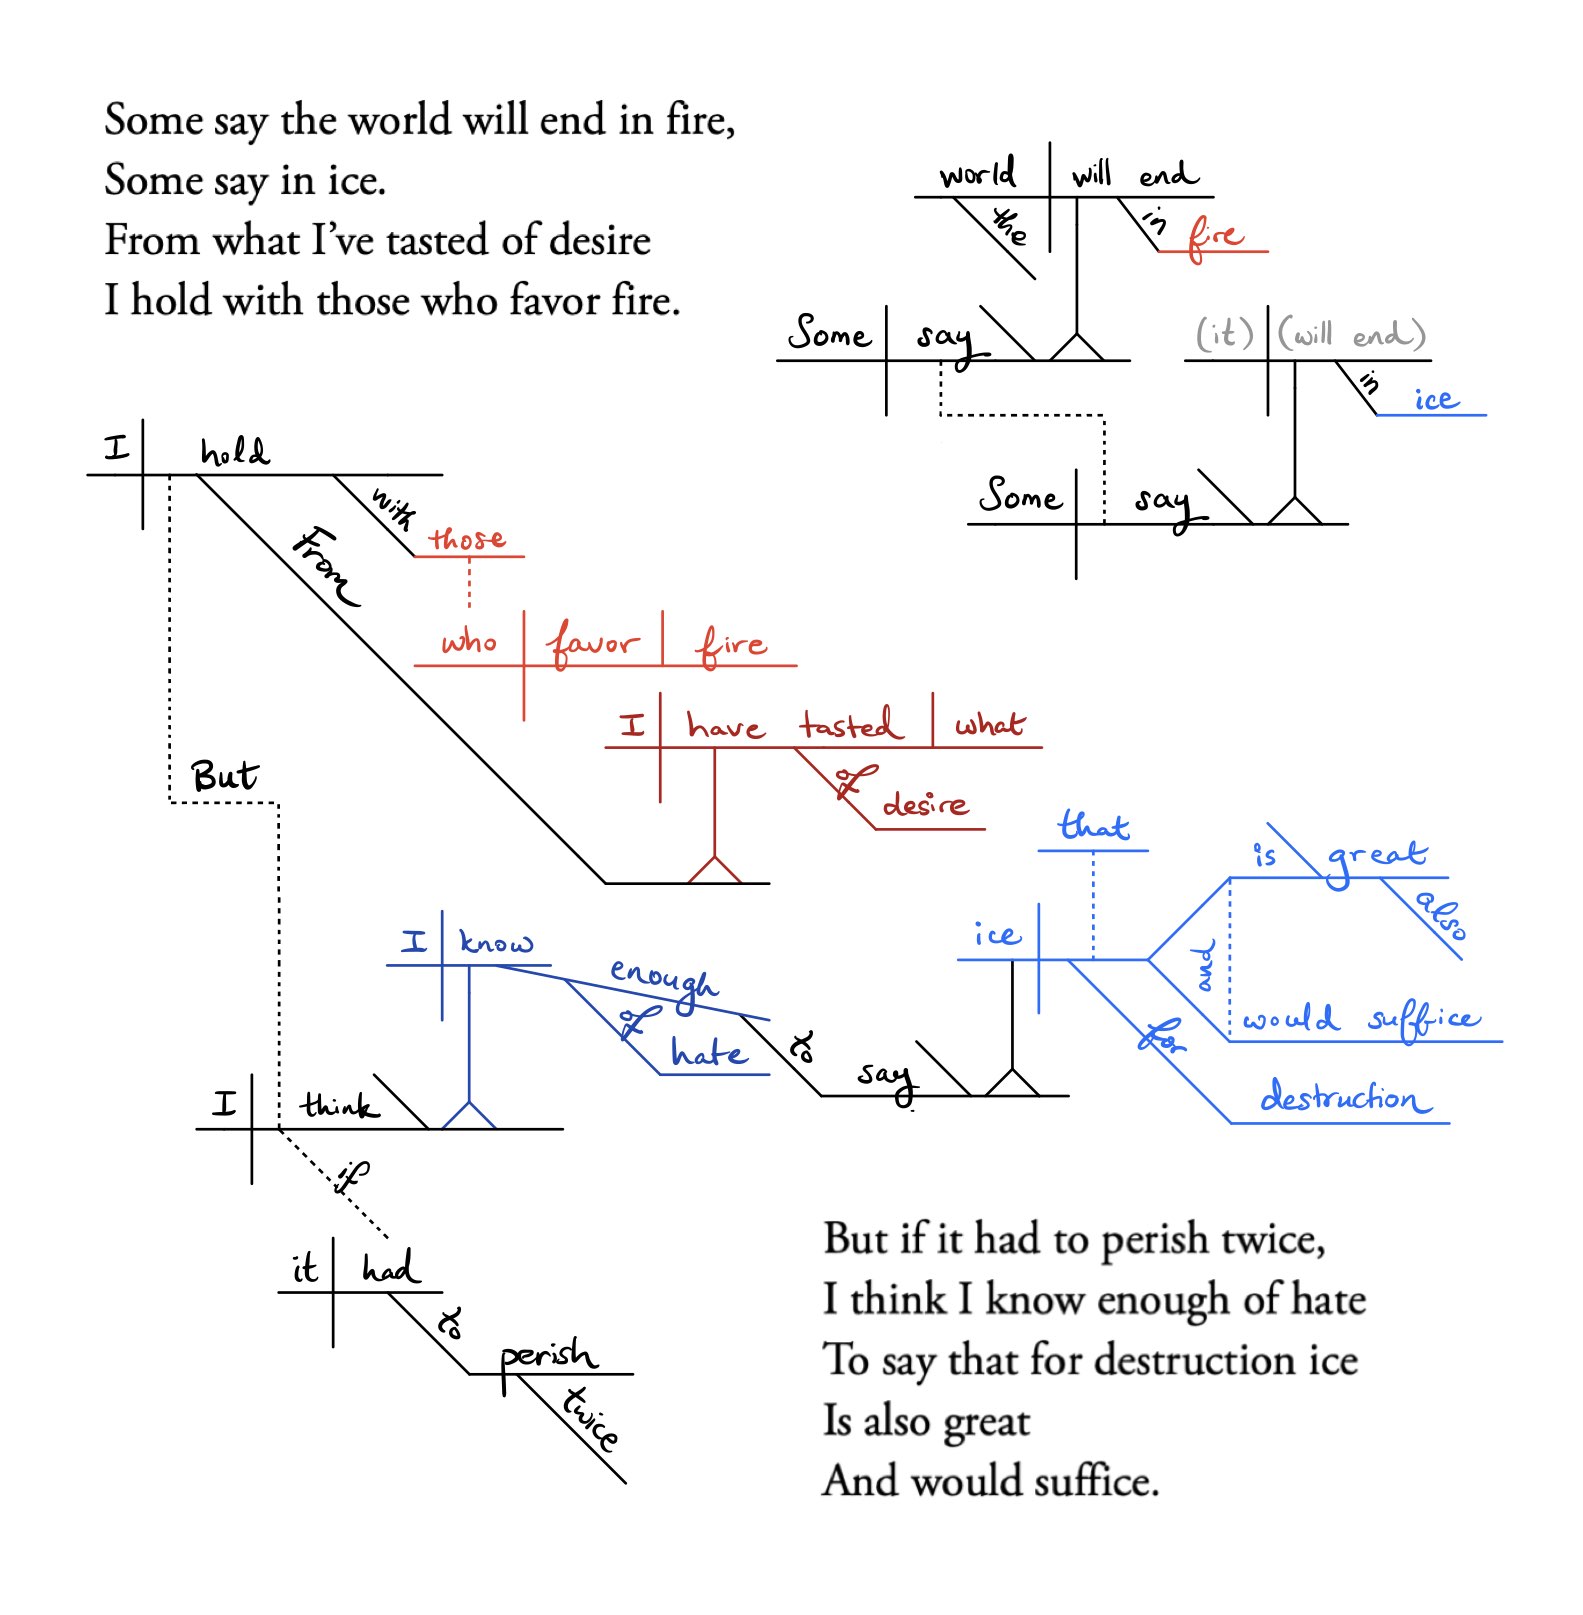 Some say the world will end in fire,
Some say in ice.
From what I've tasted of desire
I hold with those who favor fire.
world will end
the
in
fire
Some say
(it) (will end)
in
ice
Some say
I hold
with
those
From
who favor fire
I have tasted what
of
desire
But
that
is great
also
ice
and
would suffice
for
destruction
I know
enough
of
hate
to
say
I think
if
it had
to
perish
twice
But if it had to perish twice,
I think I know enough of hate
To say that for destruction ice
Is also great
And would suffice.